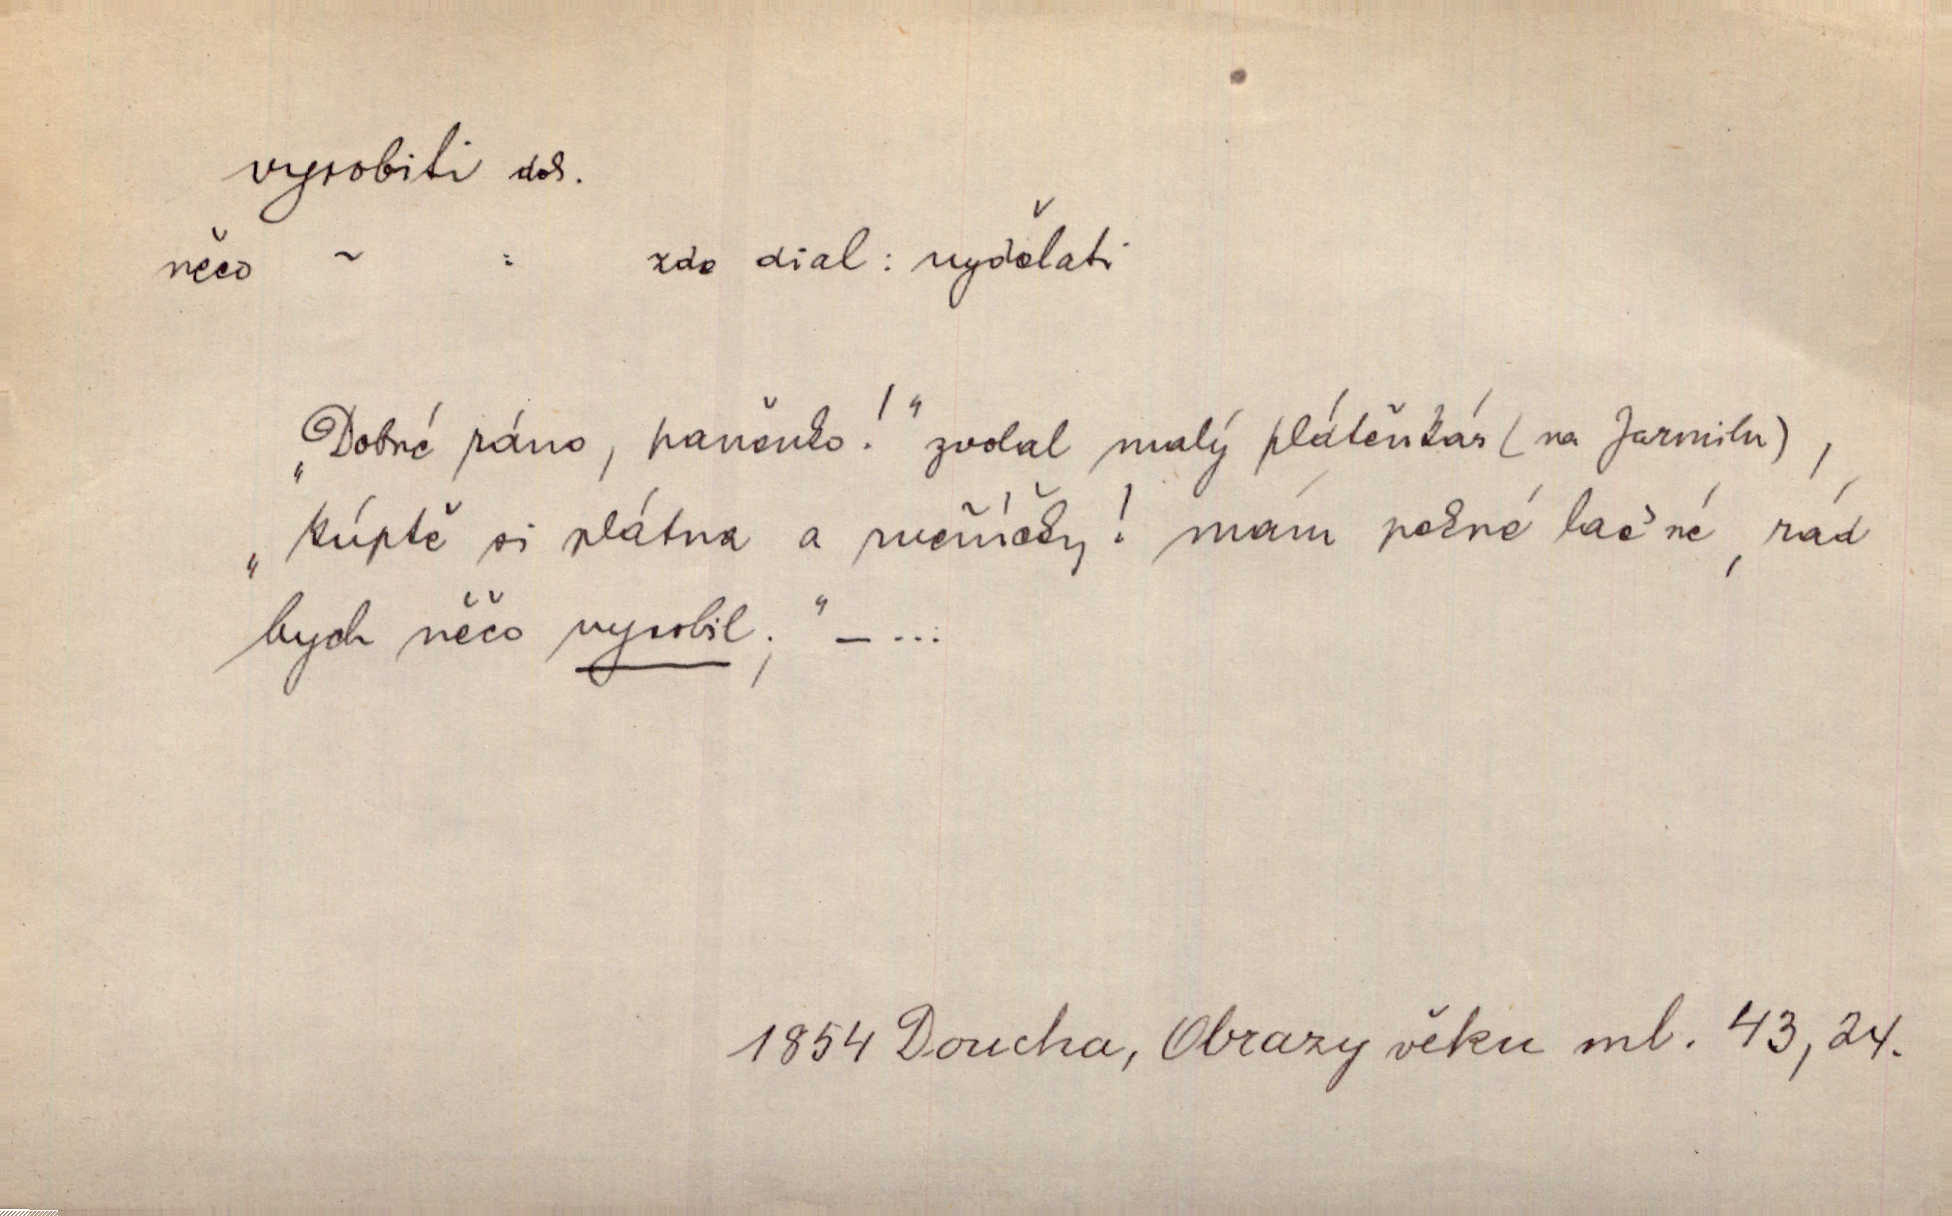 vyrobiti dok.
něco ~ : zde dial: vydělati
„Dobré ráno, panenko!“ zvolal malý plátěnkář (na Jarmilu),
„kúptě si plátna a ručníčky! mám pěkné lačné, rád
bych něčo vyrobil;“ – ...
1854 Doucha, Obrazy věku ml. 43, 24.